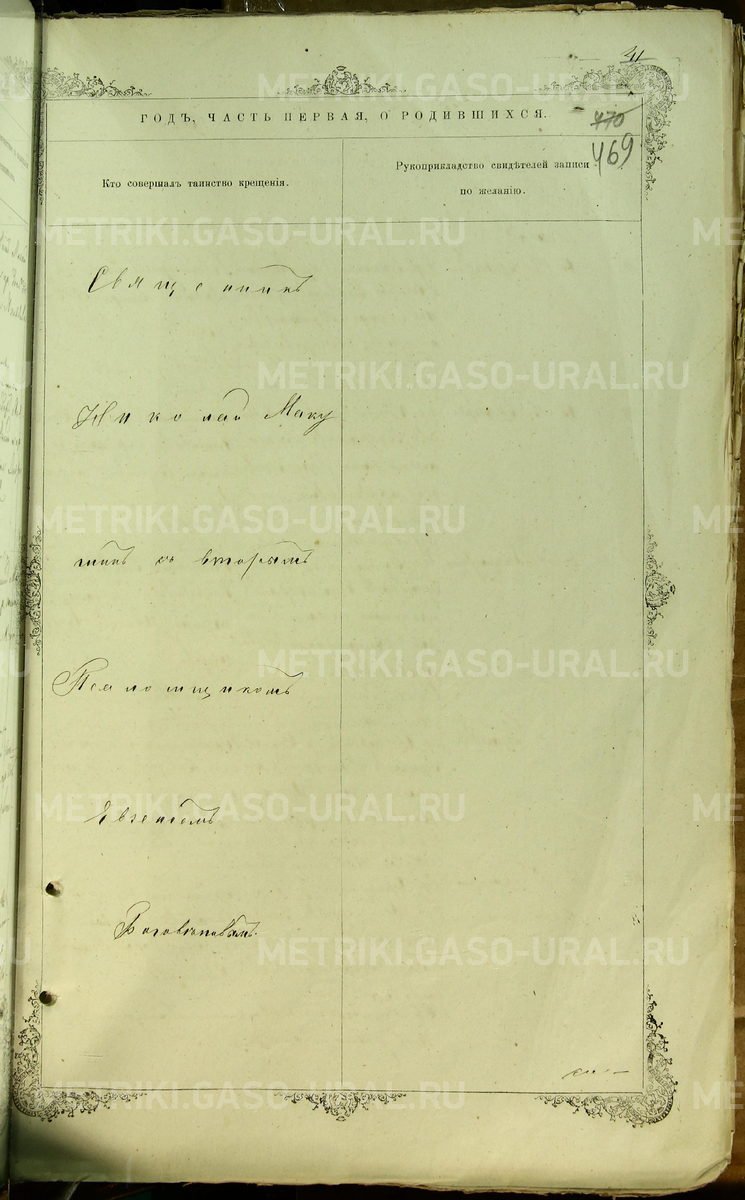 41
ГОДЪ, ЧАСТЬ ПЕРВАЯ, О РОДИВШИХСЯ.
470
469
Кто совершалъ таинство крещенія.
Рукоприкладство свидѣтелей записи
по желанію.
Священникъ
Николай Маку
шинъ съ вторымъ
Псаломщикомъ
Евгеніемъ
METRIKI.GASO-URAL.RU